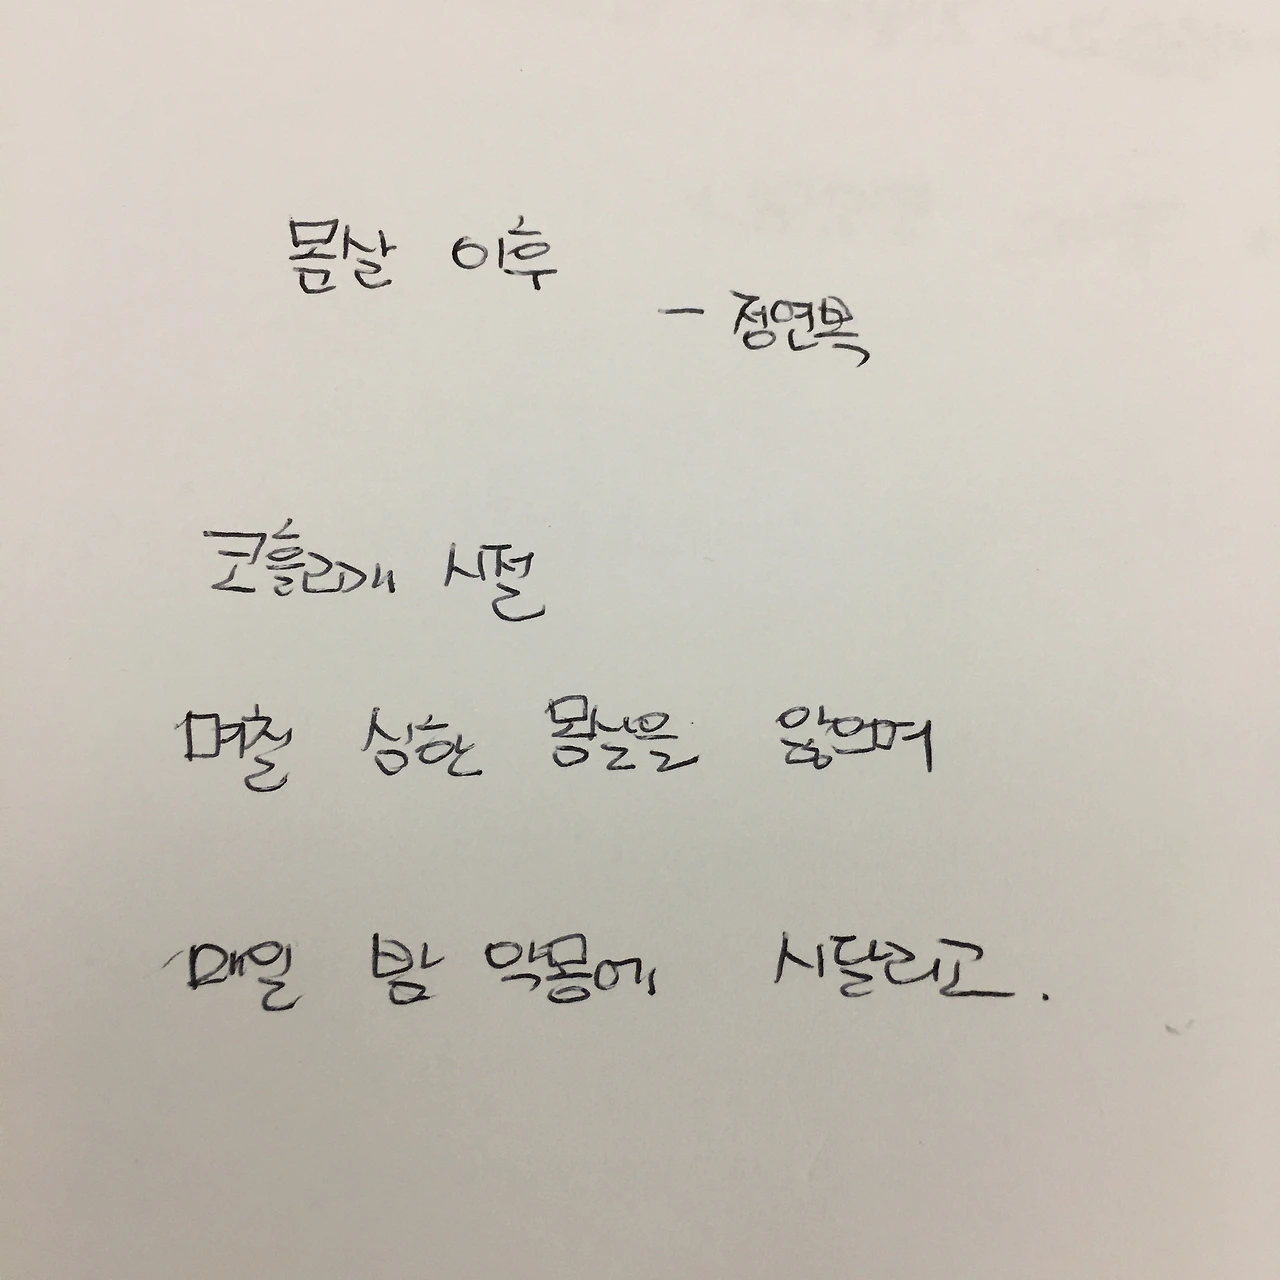 몸살 이후
- 정연복
코흘리개 시절
며칠 심한 몸살을 앓으며
매일 밤 악몽에 시달리고.